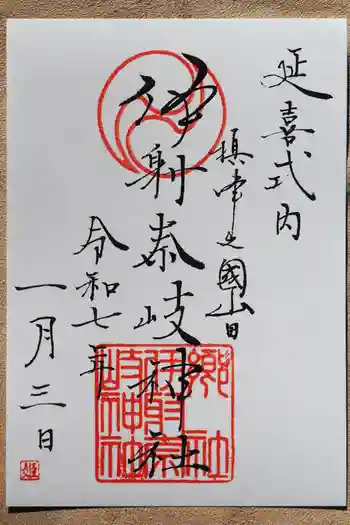 延喜式内
槙本之國山田
伊射奈岐神社
令和七年
一月三日
郷社
伊射奈
岐神社